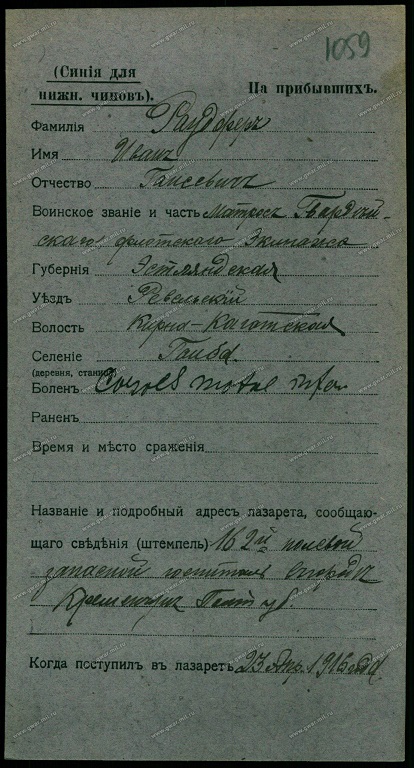 1059
(Синія для
нижн. чиновъ).
На прибывшихъ.
Фамилія Раудферъ
Имя Иванъ
Отчество Гансевичъ
Воинское званіе и часть Матросъ Гвардей-
скаго флотскаго Экипажа
Губернія Эстляндская
Уѣздъ Ревельскій
Волость Кирна-Каготская
Селеніе
(деревня, станица)
Боленъ
Раненъ
Время и мѣсто сраженія
Названіе и подробный адресъ лазарета, сообщаю-
щаго свѣдѣнія (штемпель) 162й полевой
запасной госпиталь
Кременчугъ Полт губ.
Когда поступилъ въ лазаретъ 23 Апр. 1916
www.gwar.mil.ru